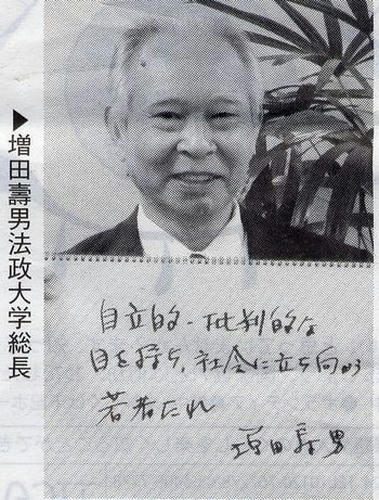 ▶増田壽男法政大学総長
自立的・批判的な
目を持ち、社会に立ち向かう
若者たれ
増田壽男